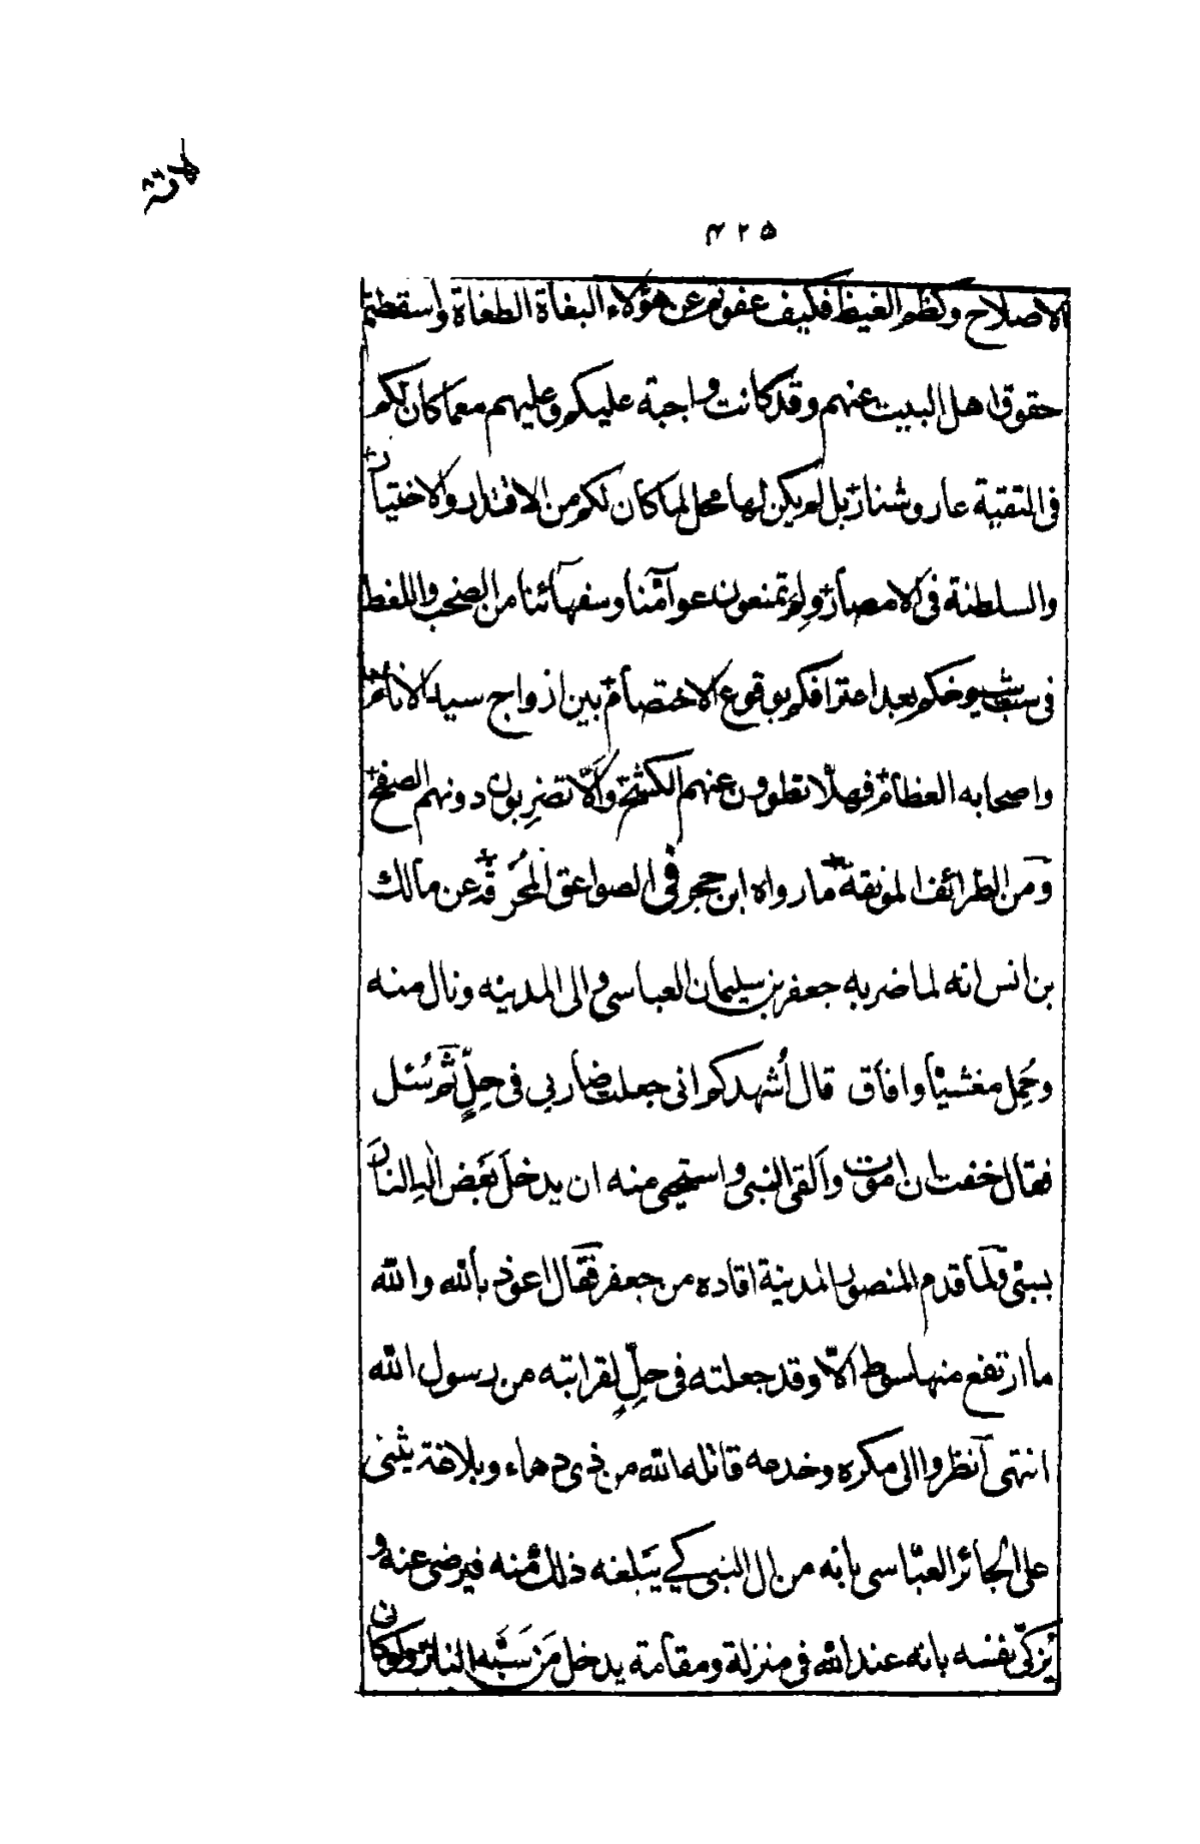 ۴۲۵
الاصلاح وكظم الغيظ فكيف عفوتم عن هؤلاء البغاة الطغاة واسقطتم
حقوق اهل البيت عنهم وقد كانت واجبة عليكم وعليهم مع ما كان لكم
فى التقية عار وشنار بل لم يكن لها محل لما كان لكم من الاقتدار والاختيار
والسلطنة فى الامصار ولم تمنعون عوآمّنا وسفهآئنا من الصخب واللغط
فى سبّ شيوخكم بعد اعترافكم بوقوع الاختصام بين ازواج سيد الانام
واصحابه العظام فهلّا تطوون عنهم الكشح والّا تضربون دونهم الصفح
ومن الطرائف المونقة ما رواه ابن حجر فى الصواعق المُحرقة عن مالك
بن انس انه لما ضربه جعفر بن سليمان العباسى والى المدينه ونال منه
وحُمِل مغشيّاً وافاق قال أُشهدكم انى جعلت ضاربي فى حِلٍّ ثم سُئل
فقال خفت ان اموت وألقى النبى واستحيى منه ان يدخل بَعَض اله النار
بسببى ولمّا قدم المنصور المدينة اقاده من جعفر فقال اعوذ بالله والله
ما ارتفع منها سوط الّا وقد جعلته فى حِلٍّ لقرابته من رسول الله
انتهى انظروا الى مكره وخدعه قاتله الله من ذى دهاء وبلاغة يثنى
على الجائر العبّاسى بانه من ال النبى كي يَبلغنه ذلك منه فيرضى عنه و
يُزكّى نفسه بانه عند الله فى منزلة ومقامة يدخل مَن سَبّه النار ولو كان